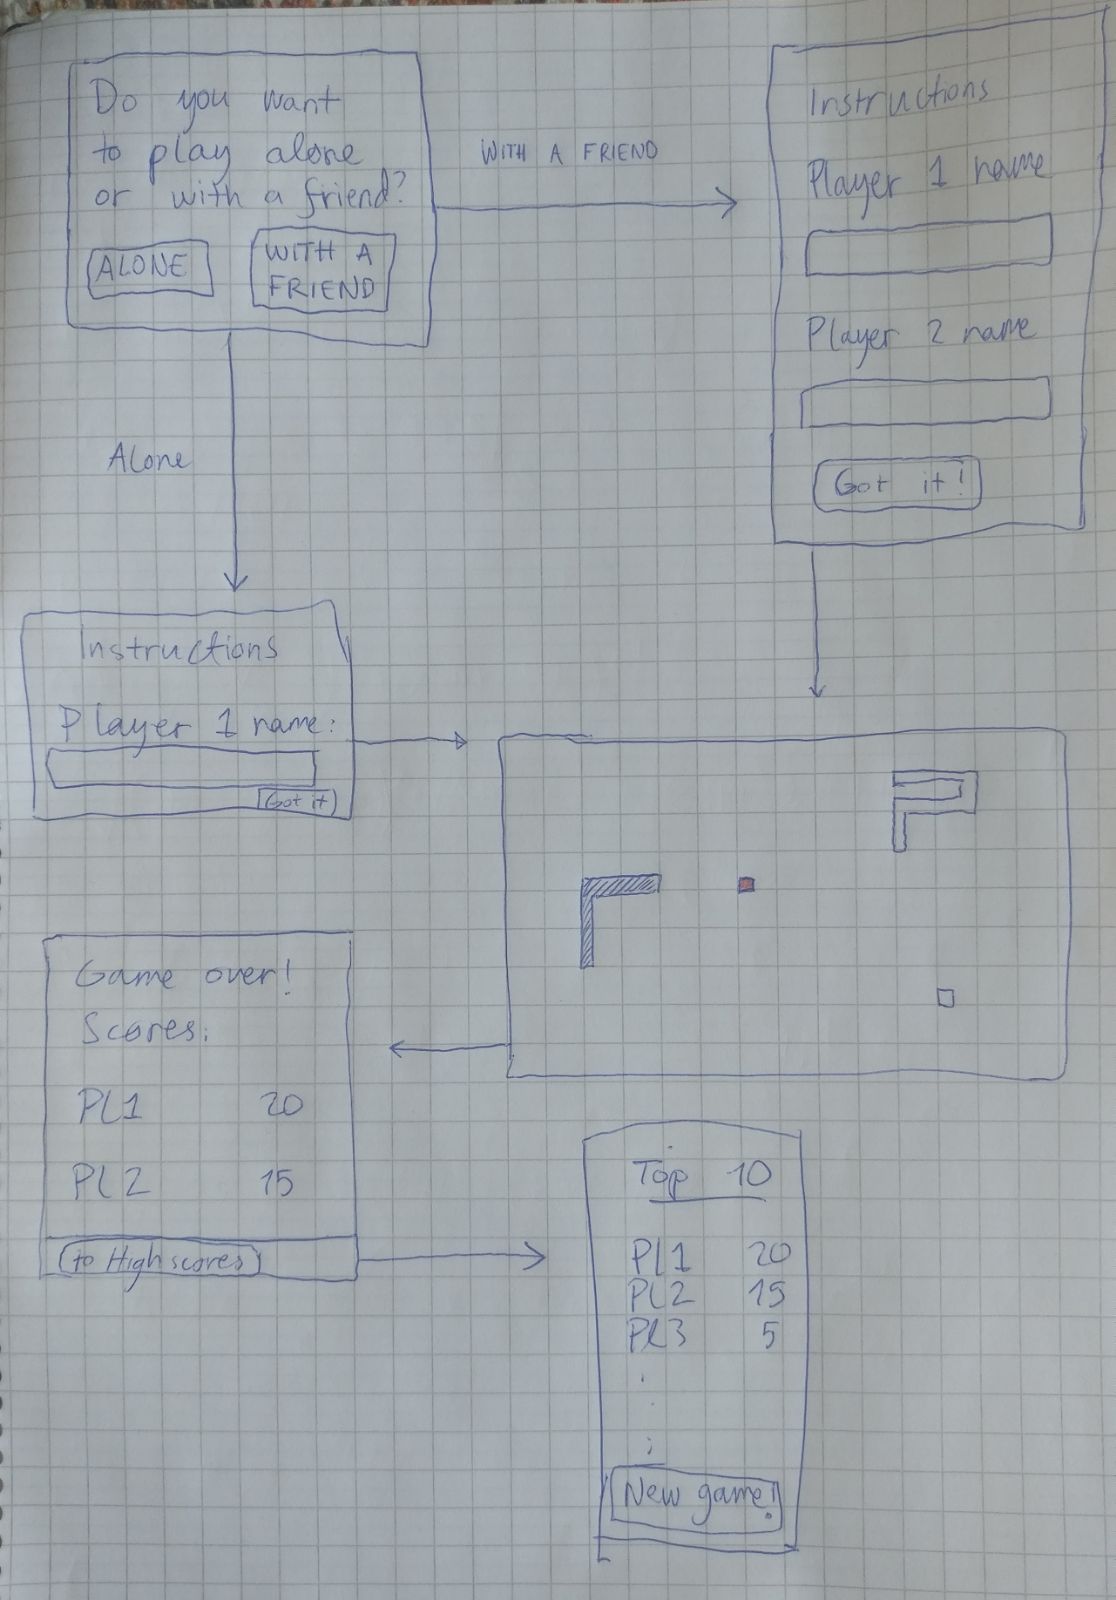 Do you want
to play alone
or with a friend?
ALONE
WITH A
FRIEND
WITH A FRIEND
Instructions
Player 1 name
Player 2 name
Got it!
Alone
Instructions
Player 1 name:
Got it
Game over!
Scores:
PL1 20
PL2 15
to Highscores
Top 10
PL1 20
PL2 15
PL3 5
.
.
:
New game!